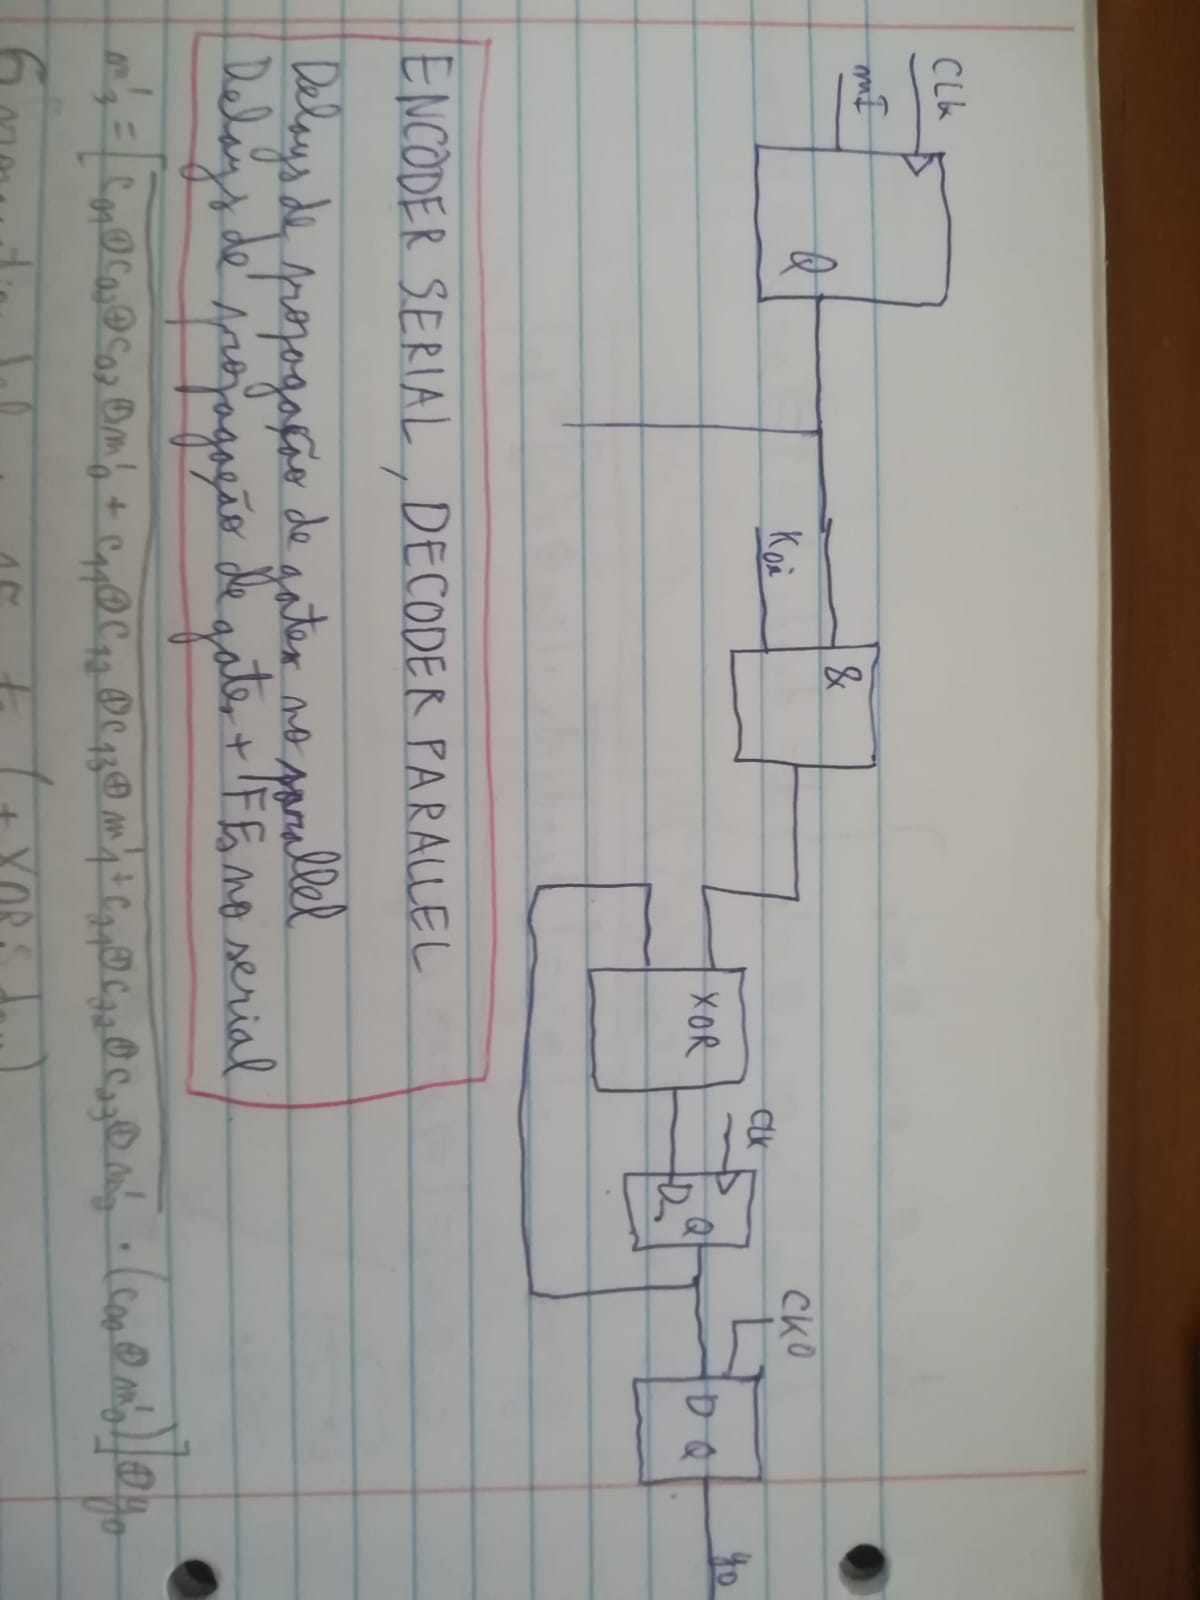 CLk
mI
Q
&
K0i
XOR
Clk
Q
D
CK0
D Q
y0
ENCODER SERIAL, DECODER PARALLEL
Delays de propagação de gates no parallel
Delays de propagação de gates + FFs no serial
m'3 = [c01⊕c02⊕c03⊕m'0 + c11⊕c12⊕c13⊕m'1 + c21⊕c22⊕c23⊕m'2 · (c00⊕m'0)]⊕y0